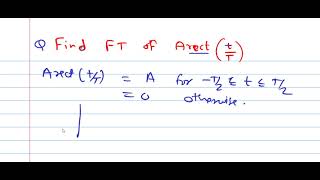 Q Find FT of Arect(t/T)
Arect(t/T) = A for -T/2 ≤ t ≤ T/2
= 0 otherwise.